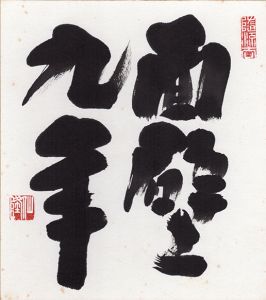 面壁
九年